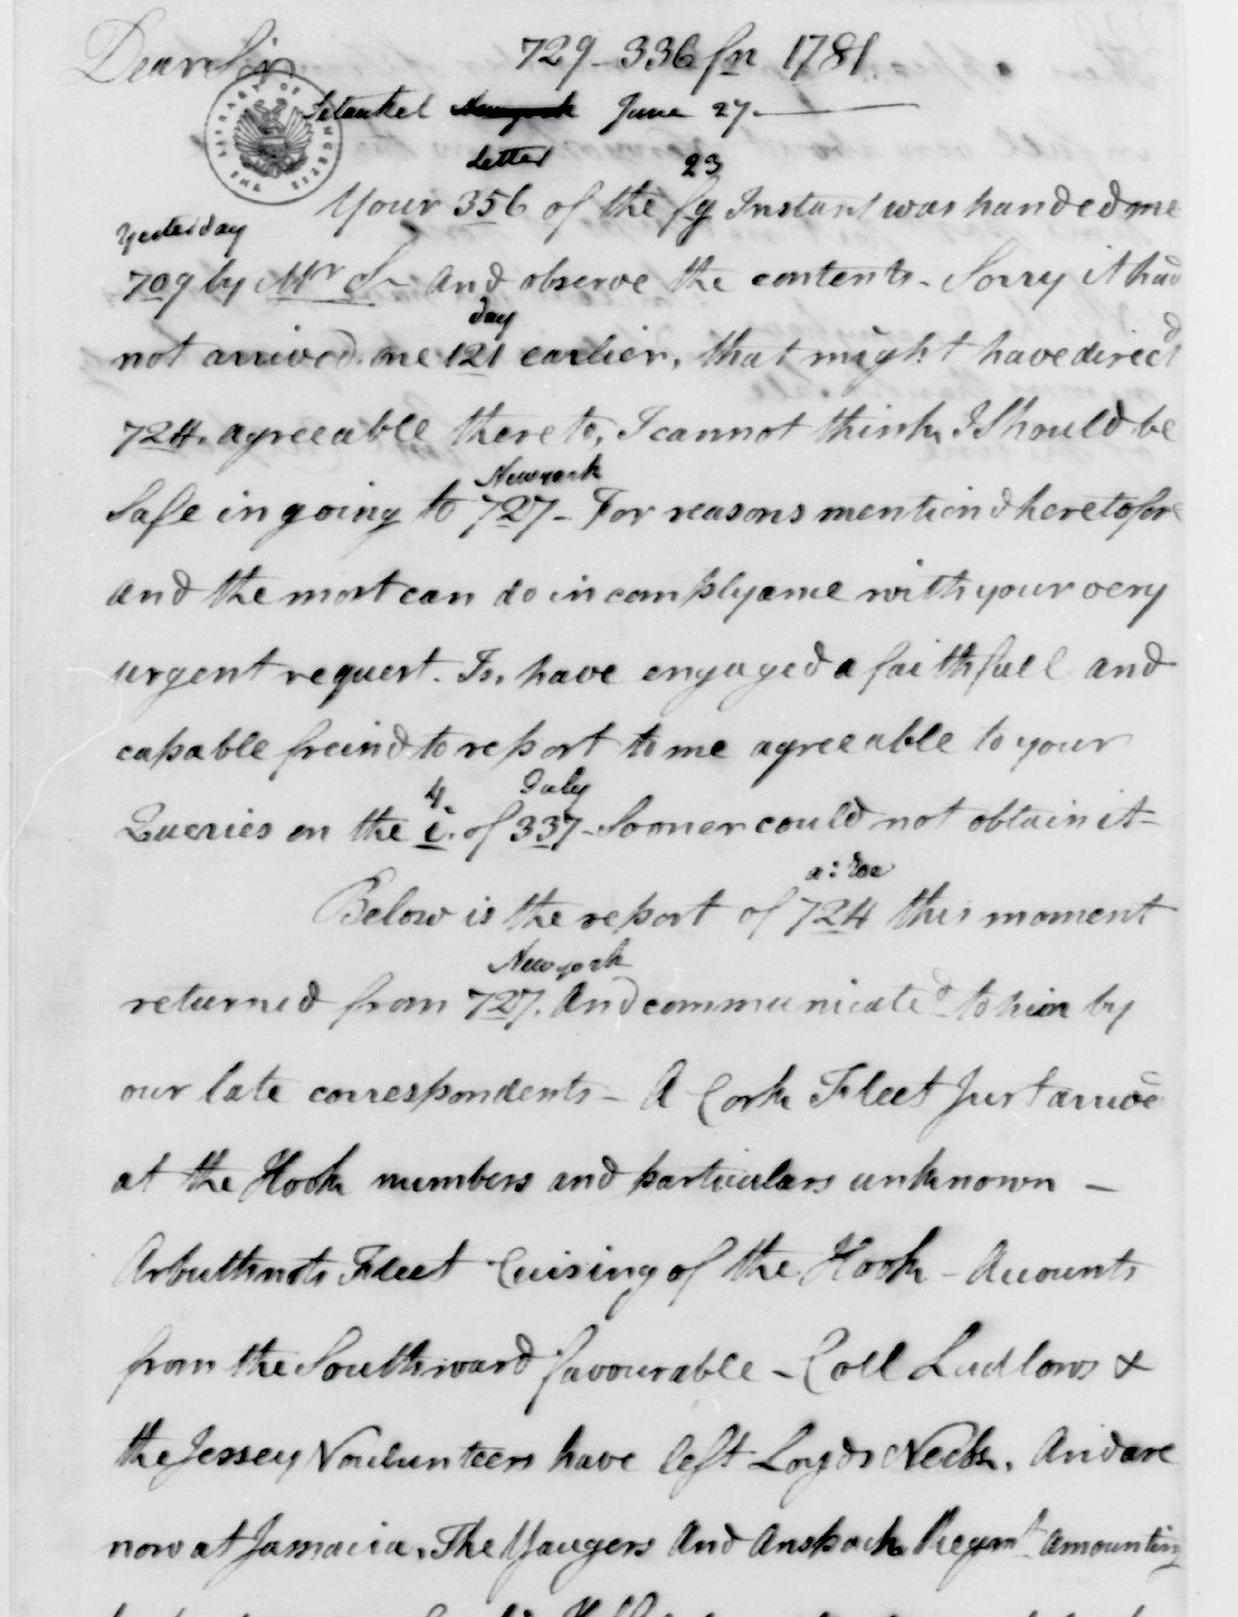 Dear Sir
729 - 336 fn 1781
Setauket Newyork June 27.
Letter 23
Your 356 of the fg Instant was handed me
Yesterday
709 by Mr S— And observe the contents - Sorry it had
day
not arrived one 121 earlier, that might have direct'd
724. agreeable thereto, I cannot think I Should be
Newyork
Safe in going to 727 - For reasons mention'd heretofore
And the most can do in complyance with your very
urgent request. Is, have engaged a faithfull and
capable freind to report to me agreeable to your
4. July
Queries on the i. of 337 - Sooner could not obtain it -
a: Roe
Below is the report of 724 this moment
Newyork
returned from 727. And communicated to him by
our late correspondents - A Cork Fleet Just arrived
at the Hook numbers and particulars unknown -
Arbuthnots Fleet Cuising of the Hook - Accounts
from the Southward favourable - Coll Ludlows &
the Jersey Voulunteers have left Loyds Neck. And are
now at Jamacia. The Yaugers And Anspach Regmt amounting